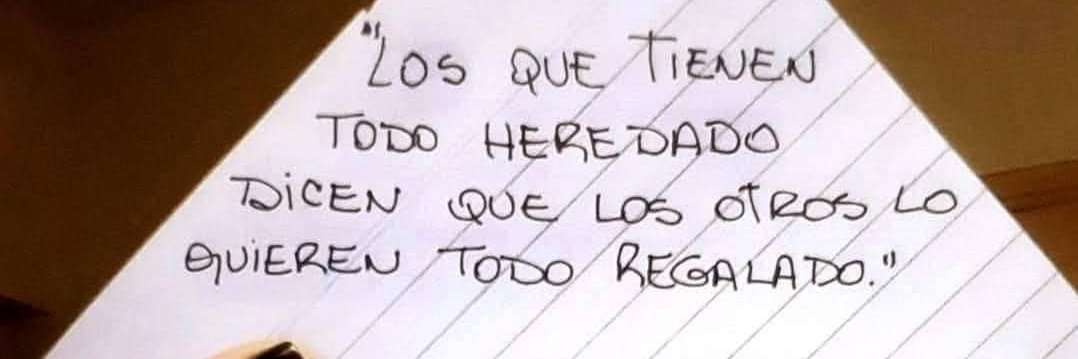 "LOS QUE TIENEN
TODO HEREDADO
DICEN QUE LOS OTROS LO
QUIEREN TODO REGALADO."